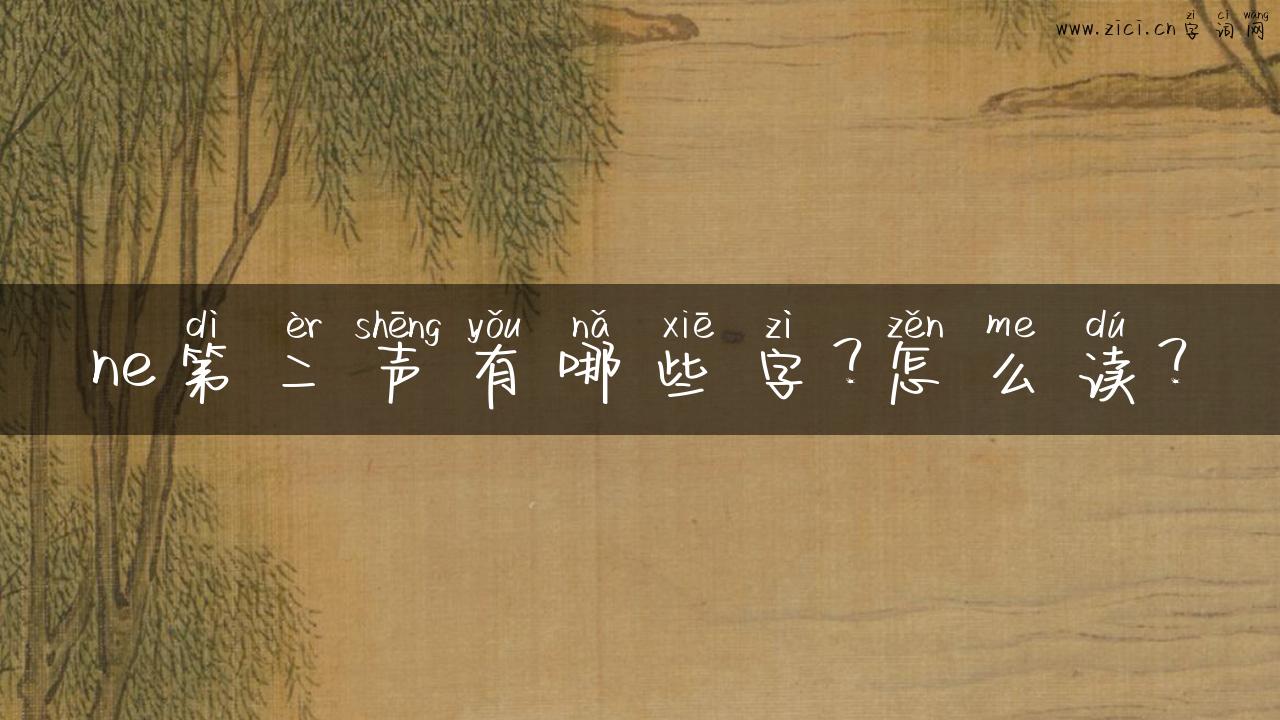 zì cí wǎng
www.zici.cn字词网
dì èr shēng yǒu nǎ xiē zì zěn me dú
ne第二声有哪些字?怎么读?